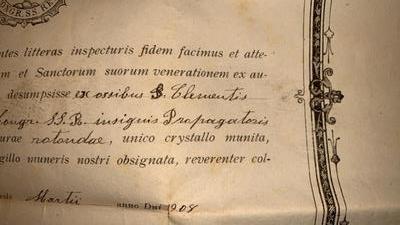 CONGR. SS RE
ntes litteras inspecturis fidem facimus et atte-
m et Sanctorum suorum venerationem ex au-
desumpsisse ex ossibus S. Clementis
Congr. SS. R. insignis Propagatoris
urae rotondae, unico crystallo munita,
gillo muneris nostri obsignata, reverenter col-
Martii anno Dni 1908